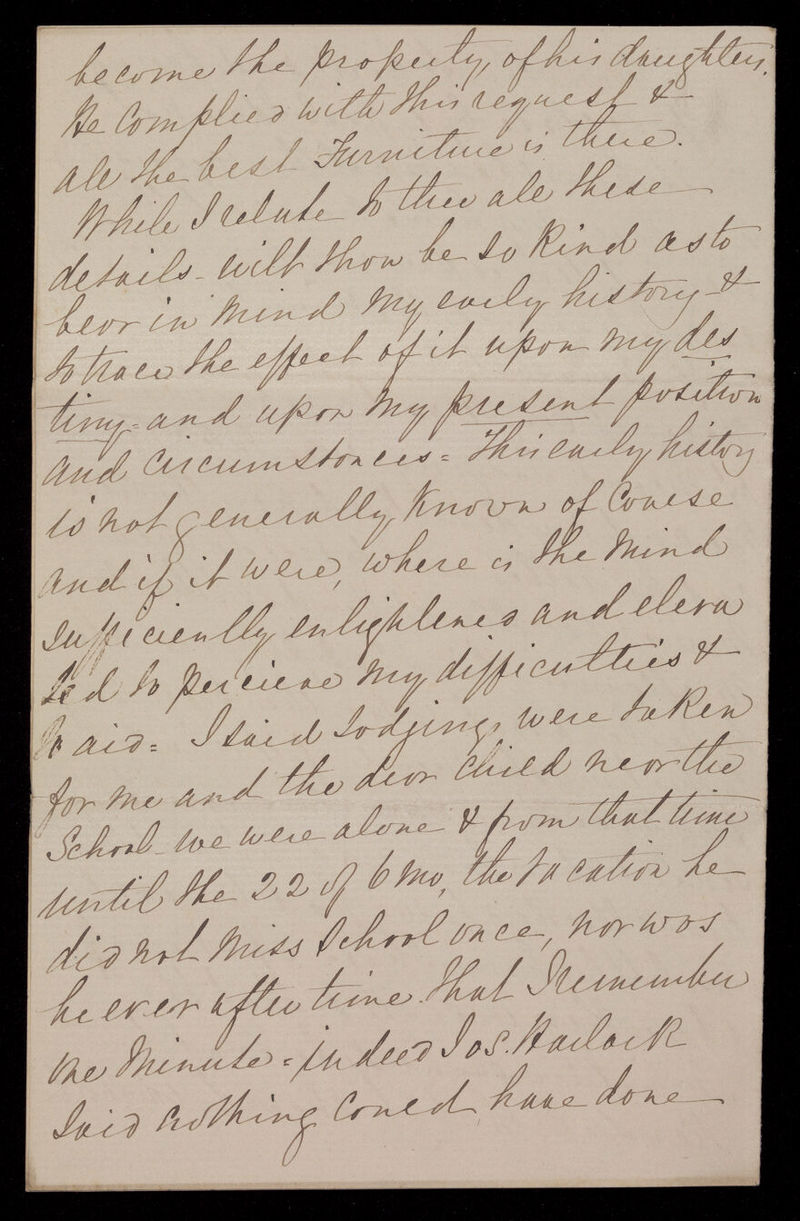 become the property, of his daughters.
He complied with this request &
all the best Furniture is there.
While I relate to thee all these
details - wilt thou be so kind as to
bear in mind my early history &
to trace the effect of it upon my des
tiny = and upon my present position
and circumstances = This early history
is not generally known of course
and if it were, where is the mind
sufficiently enlightened and eleva
ted to perceive my difficulties &
to aid = I said lodgings were taken
for me and the dear child near the
School - we were alone & from that time
until the 22 of 6 mo, the vacation he
did not miss school once, nor was
he ever after time that I remember
one minute = indeed Jos. Hailack
said nothing could have done